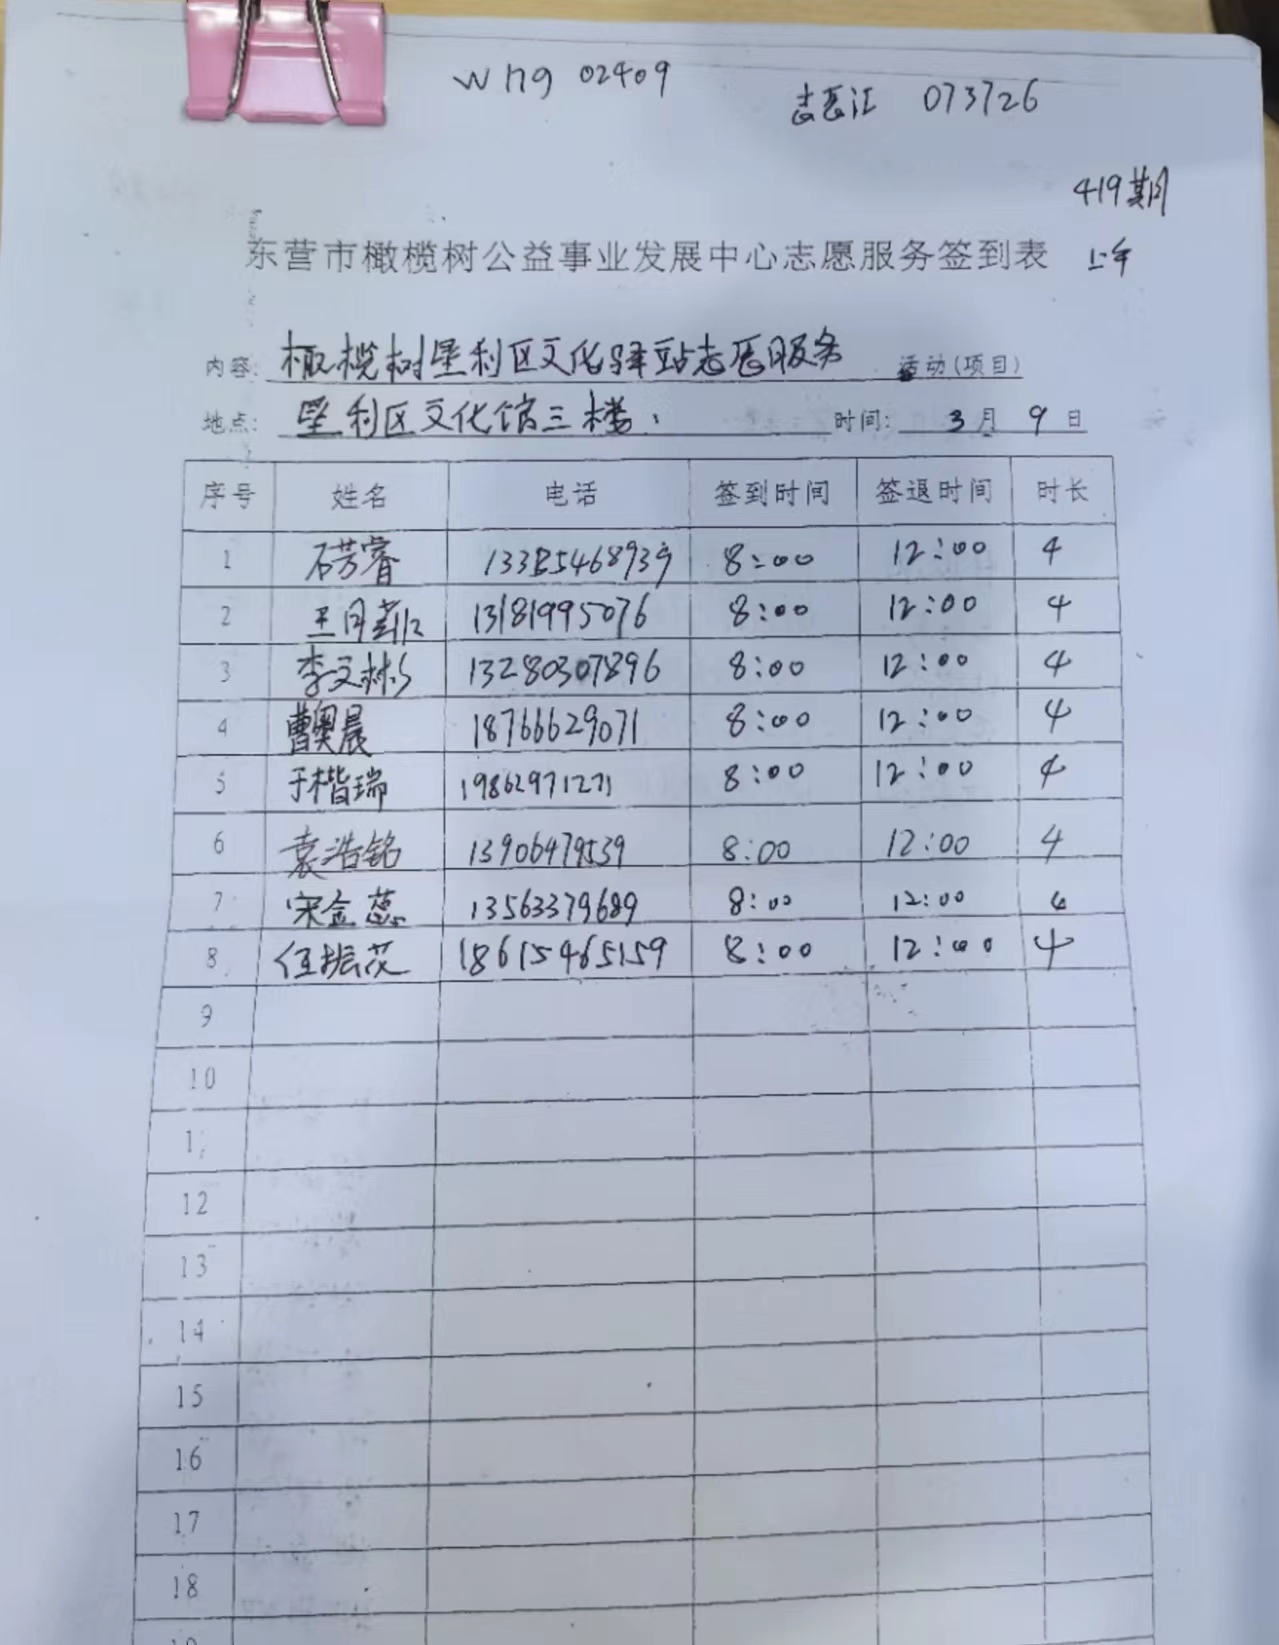 wng 02409
志愿汇 073726
419期
东营市橄榄树公益事业发展中心志愿服务签到表 上午
内容: 橄榄树垦利区文化驿站志愿服务 活动(项目)
地点: 垦利区文化馆三楼. 时间: 3月9日
序号 姓名 电话 签到时间 签退时间 时长
1 石芳睿 8:00 12:00 4
2 13181995076 8:00 12:00 4
3 李文彬 13280307896 8:00 12:00 4
4 曹奥晨 18766629071 8:00 12:00 4
5 于楷瑞 19862971271 8:00 12:00 4
6 袁浩铭 13906479539 8:00 12:00 4
7 宋金蕊 13563379689 8:00 12:00 4
8 任振花 18615465159 8:00 12:00 4
9
10
11
12
13
14
15
16
17
18
19